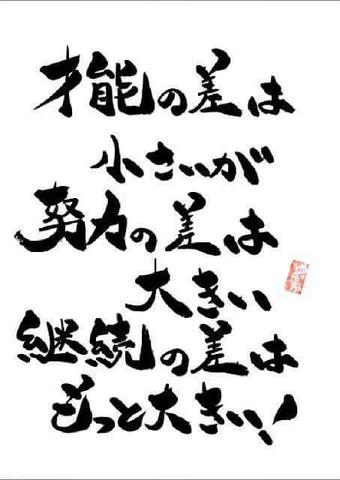 才能の差は
小さいが
努力の差は
大きい
継続の差は
もっと大きい！